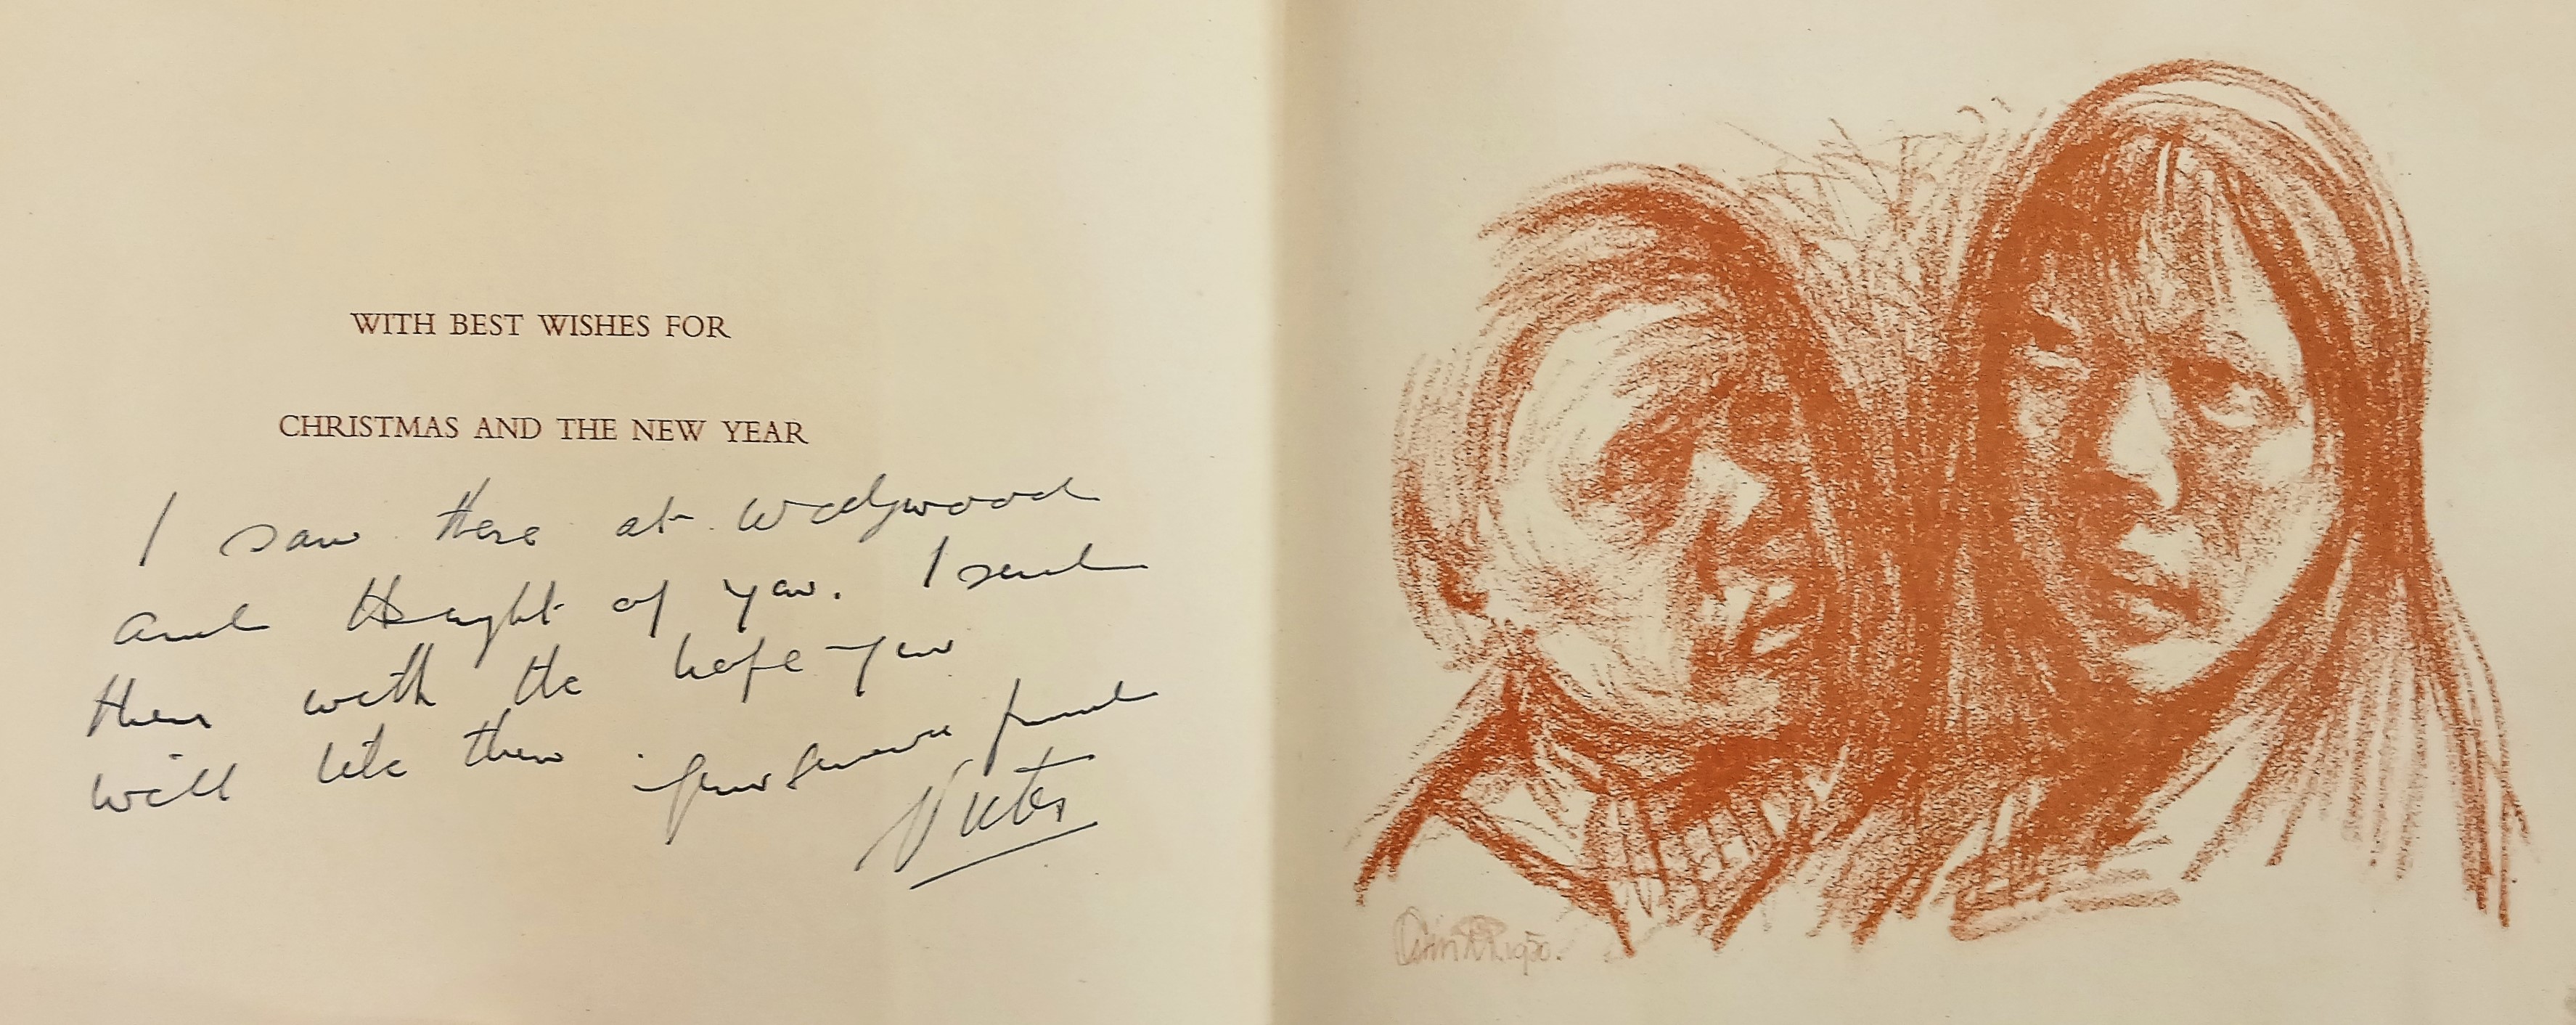 WITH BEST WISHES FOR
CHRISTMAS AND THE NEW YEAR
I saw these at Wedgwood
and thought of you. I send
them with the hope you
will like them. Your sincere friend
Victor
1950.